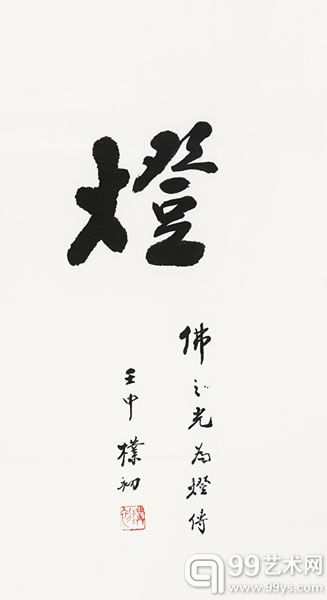 燈
佛之光為燈傳
壬申 樸初
99艺术网
www.99ys.com